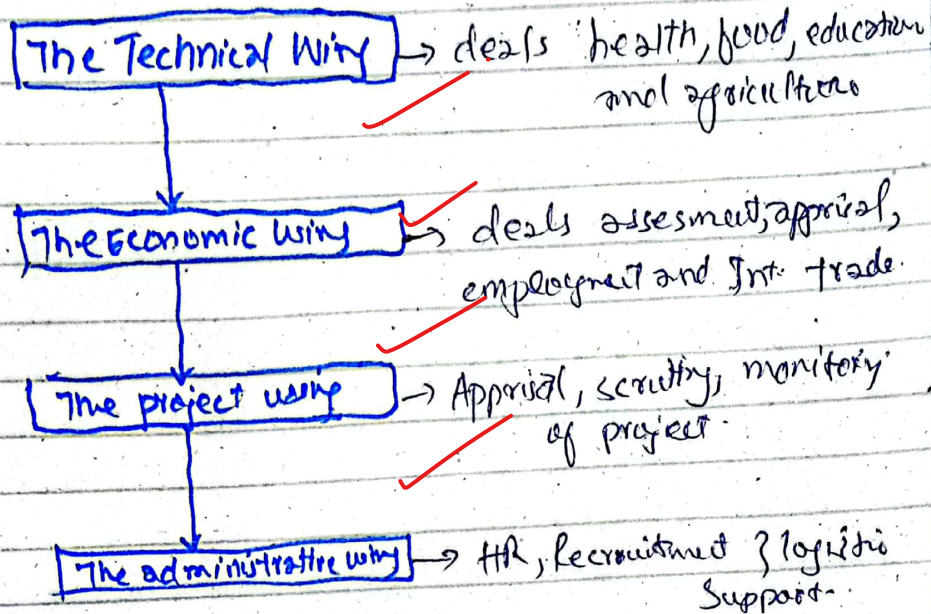 The Technical Wing → deals health, food, education
and agriculture
The Economic Wing → deals assesment, apprisal,
employment and Int. trade.
The project wing → Apprisal, scrutiny, monitory
of project.
The administrative wing → HR, Recruitment & logistic
Support.